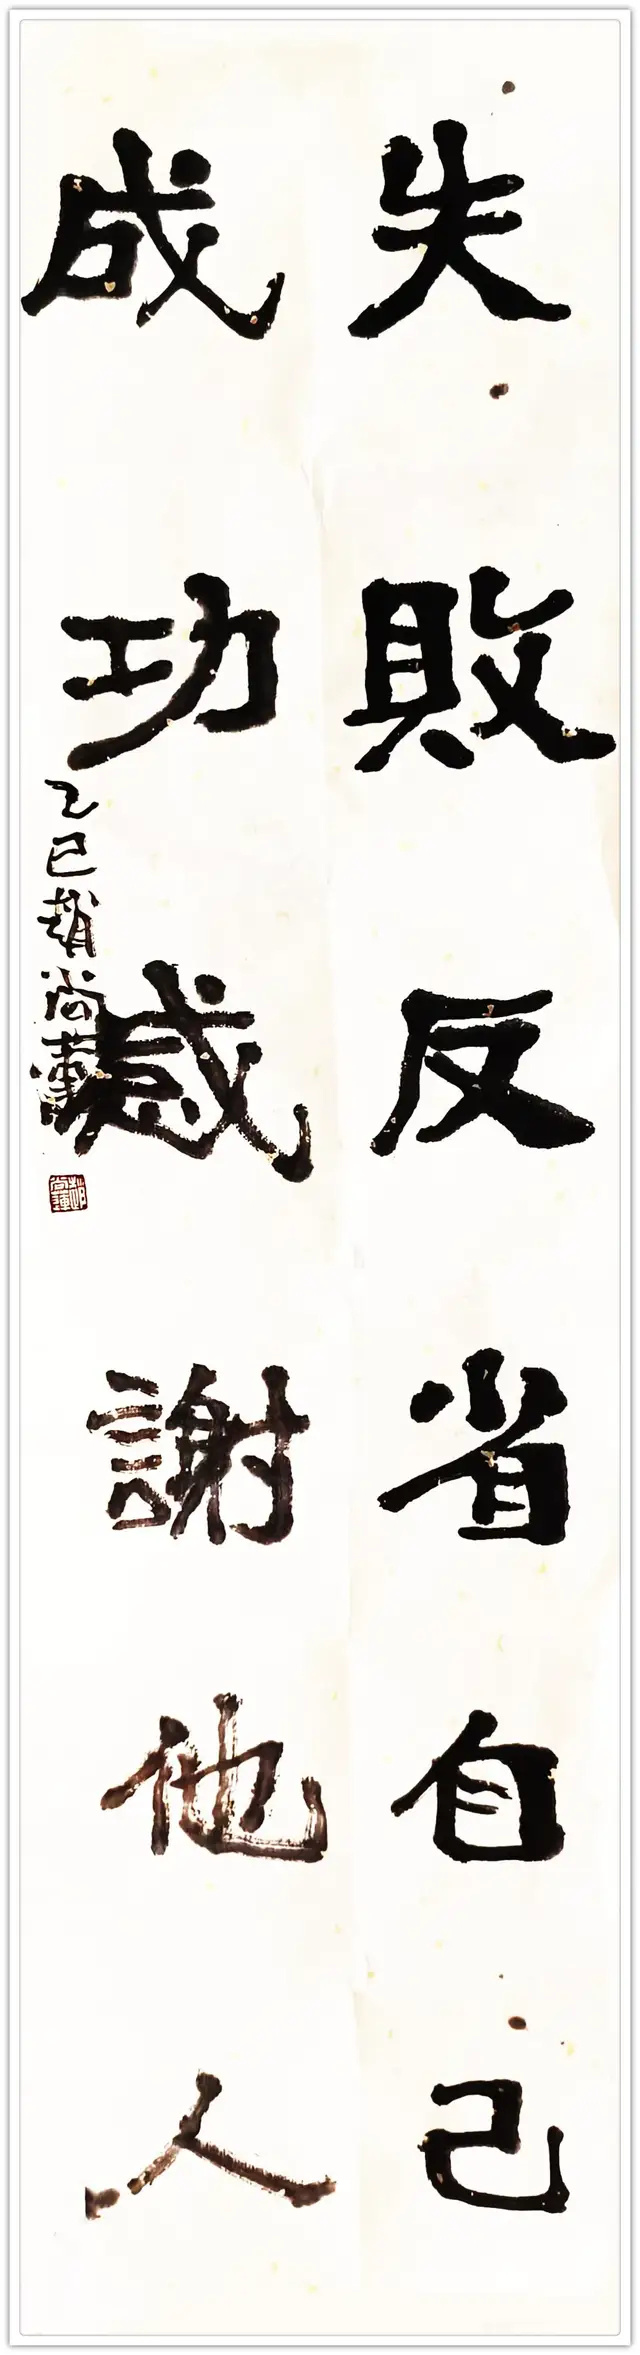 失敗反省自己
成功感謝他人
乙巳趙尚華